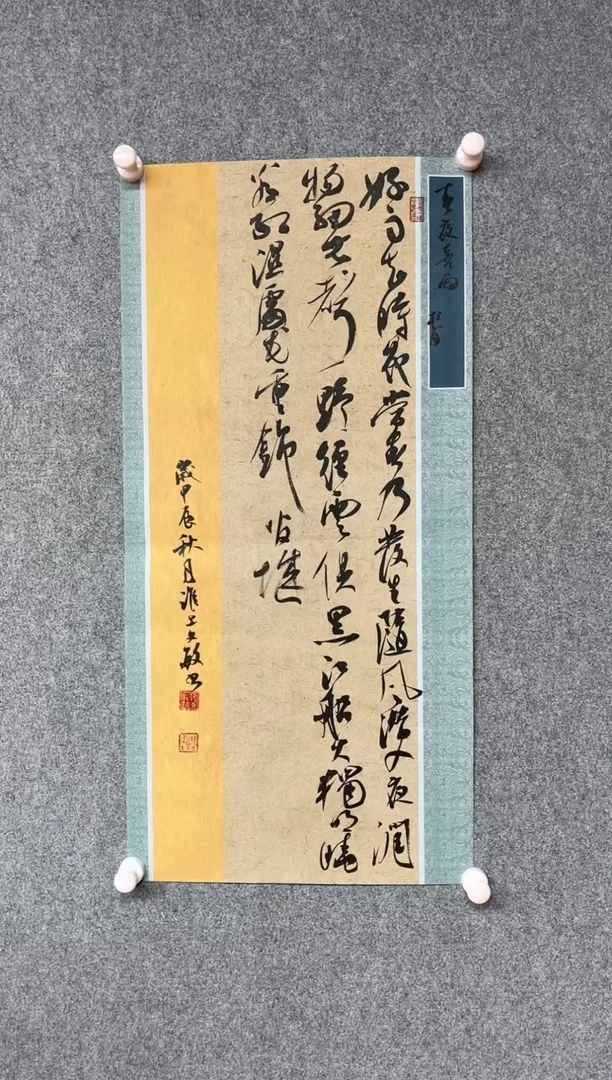 春夜喜雨
好雨知時節當春乃發生隨風潛入夜潤
物細無聲野徑雲俱黑江船火獨明曉
看紅濕處花重錦官城
歲甲辰秋月淮上文敏書